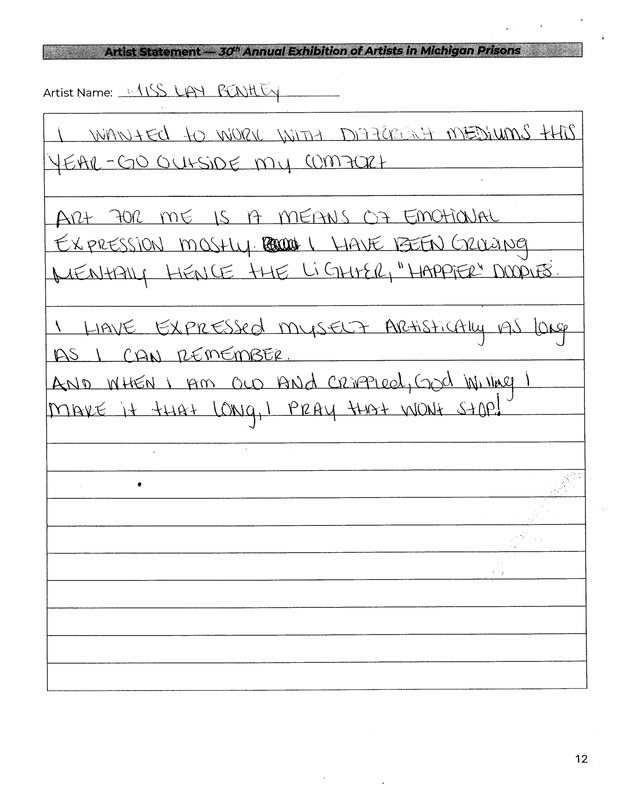 Artist Statement — 30th Annual Exhibition of Artists in Michigan Prisons
Artist Name: MISS LAY BENTLEY
I WANTED tO WORK WITH DIFFERENT MEDIUMS tHIS
YEAR-GO OUtSIDE my COMFORt
ARt FOR ME IS A MEANS OF EMOTIONAL
EXPRESSION mOStly. I HAVE BEEN GROWING
MENTAlly HENCE THE LiGHtER, "HAPPIER" DOODLES.
I HAVE EXPRESSEd mYSELF ARtiStiCAlly AS lONg
AS I CAN REMEMBER.
AND WHEN I AM OLD AND CRIPPlEd, God Willing I
MAKE it tHAt LONG, I PRAY tHAt WONt StOP!
12